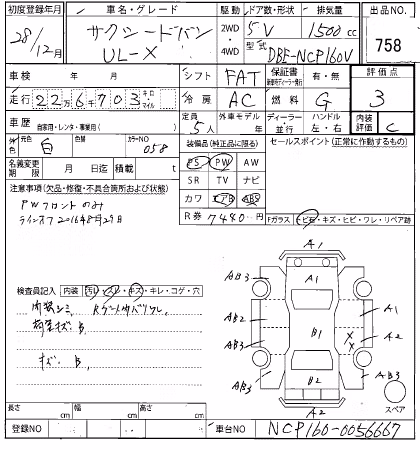 初度登録年月 車名・グレード 駆動 ドア数・形状 排気量 出品NO.
28年12月 サクシードバン UL-X 2WD 4WD 5V 1500cc 758
型式 DBE-NCP160V
車検 年 月 シフト FAT 保証書 有・無 評価点
走行 22万6千703 キロ マイル 冷房 AC 燃料 G 3
車歴 自家用・レンタ・事業用( ) 定員 5人 外車モデル ディーラー・並行 ハンドル 左・右 内装評価 C
外色 元色 白 カラーNO 058 装備品(純正品に限る) セールスポイント(正常に動作するもの)
名義変更期限 月 日迄 積載量 t PS PW AW
SR TV ナビ
注意事項(欠品・修復・不具合箇所および状態) カワ エアB ABS
PWフロントのみ R券 7480円 Fガラス トビ石・キズ・ヒビ・ワレ・リペア跡
2016年8月29日
検査員記入 内装 汚れ・スレ・キズ・キレ・コゲ・穴
内装シミ
キズ、B
A1
A1
AB3 AB3
AB2 A1
B1
AB3 A2
B2
AB3 AB3
A2
スペア
長さ cm 幅 cm 高さ cm
登録NO 車台NO NCP160-0056667